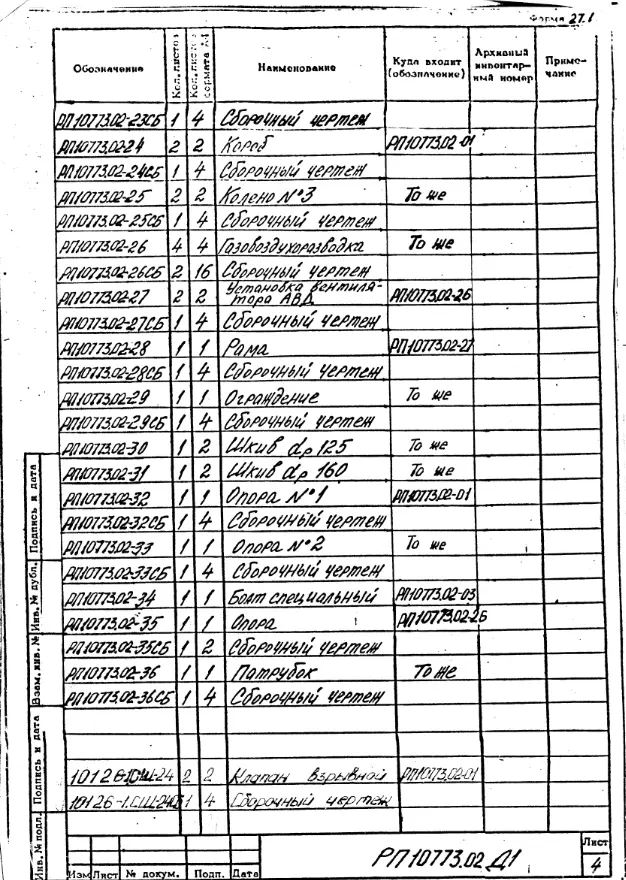 Форма 27.1
Обозначение Кол. листов Кол. листов формата А4 Наименование Куда входит (обозначение) Архивный инвентар- ный номер Приме- чание
РП10773.02-23СБ 1 4 Сборочный чертеж
РП10773.02-24 2 2 Короб РП10773.02-01
РП10773.02-24СБ 1 4 Сборочный чертеж
РП10773.02-25 2 2 Колено №3 То же
РП10773.02-25СБ 1 4 Сборочный чертеж
РП10773.02-26 4 4 Газовоздухоразводка То же
РП10773.02-26СБ 2 16 Сборочный чертеж
РП10773.02-27 2 2 Установка вентиля- тора АВД РП10773.02-26
РП10773.02-27СБ 1 4 Сборочный чертеж
РП10773.02-28 1 1 Рама РП10773.02-27
РП10773.02-28СБ 1 4 Сборочный чертеж
РП10773.02-29 1 1 Ограждение То же
РП10773.02-29СБ 1 4 Сборочный чертеж
РП10773.02-30 1 2 Шкив dр 125 То же
РП10773.02-31 1 2 Шкив dр 160 То же
РП10773.02-32 1 1 Опора №1 РП10773.02-01
РП10773.02-32СБ 1 4 Сборочный чертеж
РП10773.02-33 1 1 Опора №2 То же
РП10773.02-33СБ 1 4 Сборочный чертеж
РП10773.02-34 1 1 Болт специальный РП10773.02-03
РП10773.02-35 1 1 Опора РП10773.02-26
РП10773.02-35СБ 1 2 Сборочный чертеж
РП10773.02-36 1 1 Патрубок То же
РП10773.02-36СБ 1 4 Сборочный чертеж
2 2 Клапан взрывной РП10773.02-01
1 4 Сборочный чертеж
Инв. № подл. Подпись и дата Взам. инв. № Инв. № дубл. Подпись и дата
Изм Лист № докум. Подп. Дата
РП10773.02 Д1
Лист
4